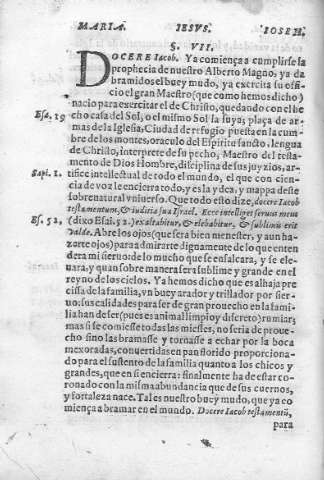 MARIA. IESVS. IOSEH.
§. VII.
DOCERE Iacob. Ya comiença a cumplirse la
prophecia de nuestro Alberto Magno, ya da
bramidos el buey mudo, ya exercita su offi
cio el gran Maestro (que como hemos dicho)
nacio para exercitar el de Christo, quedando con el he
Esa. 19 cho casa del Sol, o el mismo Sol la suya; plaça de ar-
mas de la Iglesia, Ciudad de refugio puesta en la cum-
bre de los montes, oraculo del Espiritu sancto, lengua
de Christo, interprete de su pecho, Maestro del testa-
mento de Dios Hombre, disciplina de sus juyzios, ar-
Sapi. 1. tifice intellectual de todo el mundo, el que con cien-
cia de voz le encierra todo, y es la ydea, y mappa deste
sobrenatural vniuerso. Que todo esto dize, docere Iacob
testamentum, & iudicia sua Israel. Ecce intelliget seruus meus
Es. 52, (dixo Esai. 52.) exaltabitur, & eleuabitur, & sublimis erit
valde. Abre los ojos (que sera bien menester, y aun ha-
zarte ojos) para admirarte dignamente de lo que enten
dera mi sieruo: de lo mucho que se ensalçara, y se ele-
uara, y quan sobre manera sera sublime y grande en el
reyno de los cielos. Ya hemos dicho que es alhaja pre
cissa de la familia, vn buey arador y trillador por sier-
uo: sus calidades para ser de gran prouecho en la fami-
lia han de ser (pues es animal limpio y discreto) rumiar;
mas si se comiesse todas las miesses, no seria de proue-
cho sino las bramasse y tornasse a echar por la boca
mexoradas, conuertidas en pan florido proporciona-
do para el sustento de la familia quanto a los chicos y
grandes, que en si encierra: finalmente ha de estar co-
ronado con la misma abundancia que de sus cuernos,
y fortaleza nace. Tal es nuestro buey mudo, que ya co
miença a bramar en el mundo. Docere Iacob testamentũ,
para